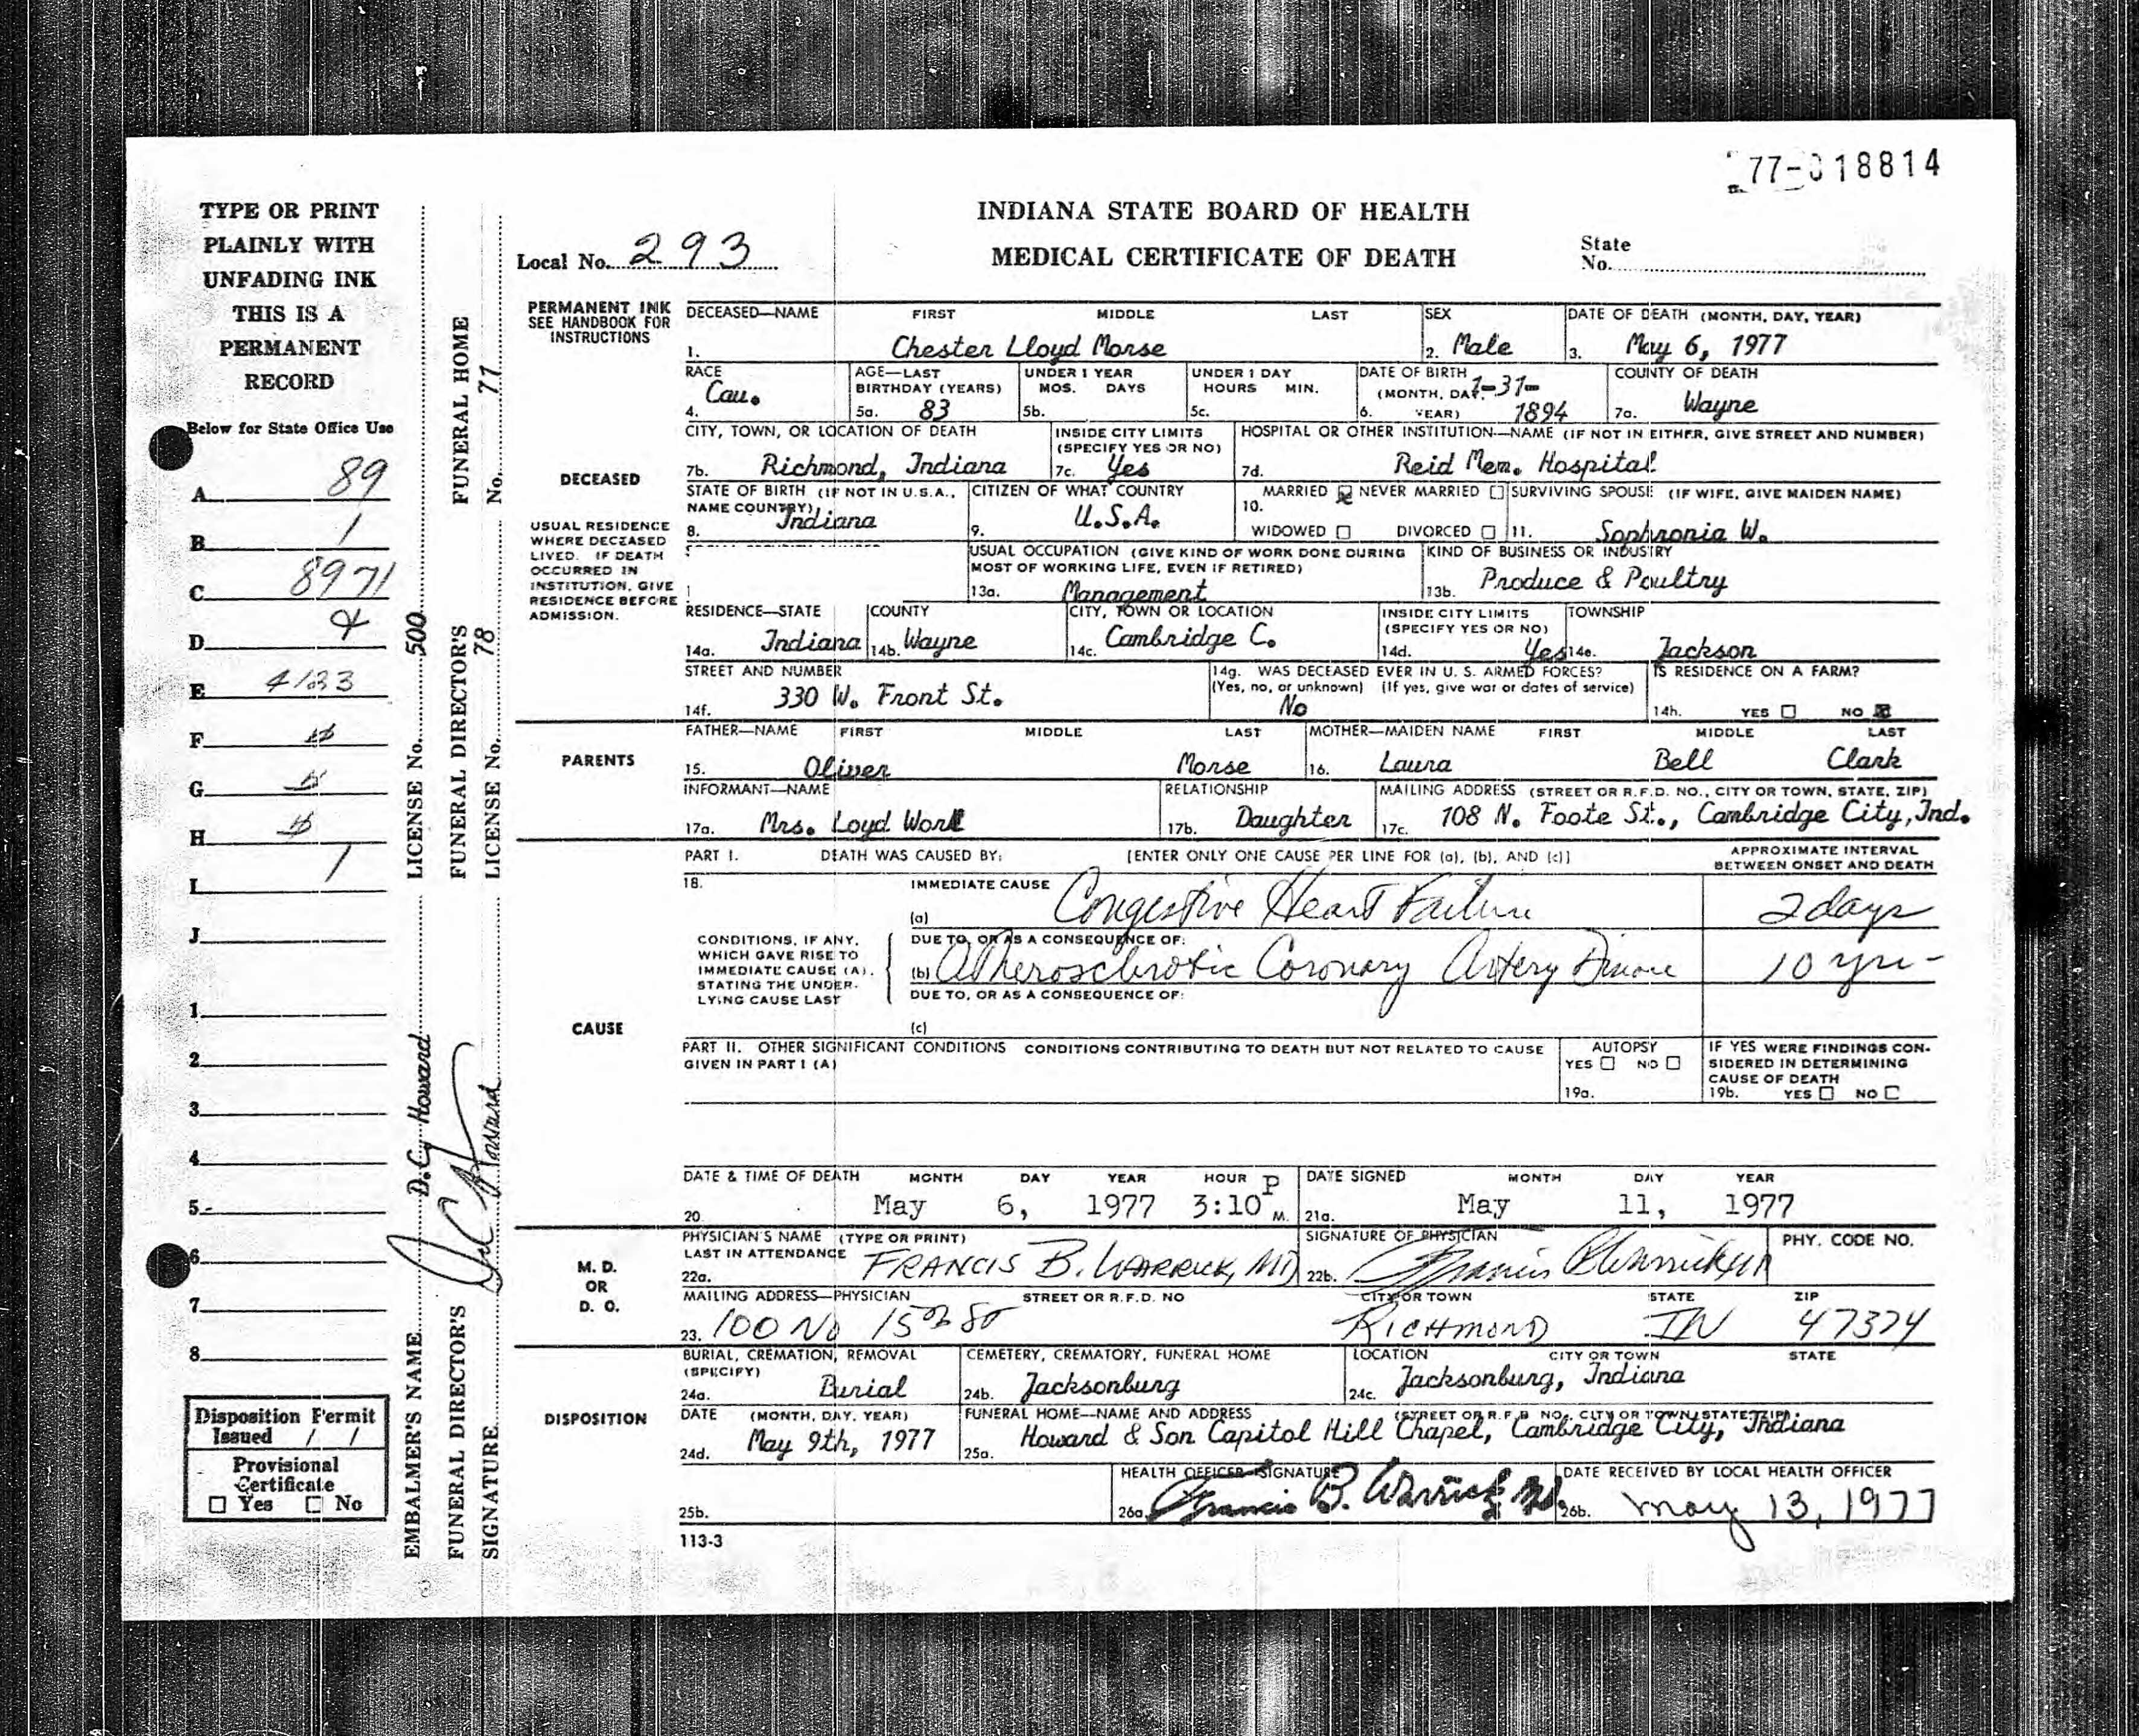 77-018814
TYPE OR PRINT
PLAINLY WITH
UNFADING INK
THIS IS A
PERMANENT
RECORD
Below for State Office Use
A 89
B 1
C 8971
D 4
E
F
G
H
I 1
J
1
2
3
4
5
6
7
8
Disposition Permit
Issued / /
Provisional
Certificate
☐ Yes ☐ No
EMBALMER'S NAME D.C. Howard LICENSE No. 500
FUNERAL DIRECTOR'S FUNERAL DIRECTOR'S FUNERAL HOME
SIGNATURE Howard LICENSE No. 78 No. 77
INDIANA STATE BOARD OF HEALTH
Local No. 293 MEDICAL CERTIFICATE OF DEATH State
No.
PERMANENT INK
SEE HANDBOOK FOR
INSTRUCTIONS
DECEASED—NAME FIRST MIDDLE LAST SEX DATE OF DEATH (MONTH, DAY, YEAR)
1. Chester Lloyd Morse 2. Male 3. May 6, 1977
RACE AGE—LAST UNDER 1 YEAR UNDER 1 DAY DATE OF BIRTH COUNTY OF DEATH
BIRTHDAY (YEARS) MOS. DAYS HOURS MIN. (MONTH, DAY, 1-31-
4. Cau. 5a. 83 5b. 5c. 6. YEAR) 1894 7a. Wayne
CITY, TOWN, OR LOCATION OF DEATH INSIDE CITY LIMITS HOSPITAL OR OTHER INSTITUTION—NAME (IF NOT IN EITHER, GIVE STREET AND NUMBER)
(SPECIFY YES OR NO)
7b. Richmond, Indiana 7c. Yes 7d. Reid Mem. Hospital
DECEASED
STATE OF BIRTH (IF NOT IN U.S.A., CITIZEN OF WHAT COUNTRY MARRIED ☒ NEVER MARRIED ☐ SURVIVING SPOUSE (IF WIFE, GIVE MAIDEN NAME)
NAME COUNTRY) 10.
8. Indiana 9. U.S.A. WIDOWED ☐ DIVORCED ☐ 11. Sophronia W.
USUAL RESIDENCE
WHERE DECEASED
LIVED. IF DEATH
OCCURRED IN
INSTITUTION, GIVE
RESIDENCE BEFORE
ADMISSION.
USUAL OCCUPATION (GIVE KIND OF WORK DONE DURING KIND OF BUSINESS OR INDUSTRY
MOST OF WORKING LIFE, EVEN IF RETIRED)
13a. Management 13b. Produce & Poultry
RESIDENCE—STATE COUNTY CITY, TOWN OR LOCATION INSIDE CITY LIMITS TOWNSHIP
(SPECIFY YES OR NO)
14a. Indiana 14b. Wayne 14c. Cambridge C. 14d. Yes 14e. Jackson
STREET AND NUMBER 14g. WAS DECEASED EVER IN U. S. ARMED FORCES? IS RESIDENCE ON A FARM?
(Yes, no, or unknown) (If yes, give war or dates of service)
14f. 330 W. Front St. No 14h. YES ☐ NO ☒
PARENTS
FATHER—NAME FIRST MIDDLE LAST MOTHER—MAIDEN NAME FIRST MIDDLE LAST
15. Oliver Morse 16. Laura Bell Clark
INFORMANT—NAME RELATIONSHIP MAILING ADDRESS (STREET OR R.F.D. NO., CITY OR TOWN, STATE, ZIP)
17a. Mrs. Loyd Worl 17b. Daughter 17c. 108 N. Foote St., Cambridge City, Ind.
PART I. DEATH WAS CAUSED BY: [ENTER ONLY ONE CAUSE PER LINE FOR (a), (b), AND (c)] APPROXIMATE INTERVAL
BETWEEN ONSET AND DEATH
18. IMMEDIATE CAUSE
(a) Congestive Heart Failure 2 days
CONDITIONS, IF ANY,
WHICH GAVE RISE TO
IMMEDIATE CAUSE (A),
STATING THE UNDER-
LYING CAUSE LAST
DUE TO, OR AS A CONSEQUENCE OF:
(b) Atherosclerotic Coronary Artery Disease 10 yrs-
DUE TO, OR AS A CONSEQUENCE OF:
(c)
CAUSE
PART II. OTHER SIGNIFICANT CONDITIONS CONDITIONS CONTRIBUTING TO DEATH BUT NOT RELATED TO CAUSE AUTOPSY IF YES WERE FINDINGS CON-
GIVEN IN PART I (A) YES ☐ NO ☐ SIDERED IN DETERMINING
CAUSE OF DEATH
19a. 19b. YES ☐ NO ☐
DATE & TIME OF DEATH MONTH DAY YEAR HOUR P DATE SIGNED MONTH DAY YEAR
20. May 6, 1977 3:10 M. 21a. May 11, 1977
M. D.
OR
D. O.
PHYSICIAN'S NAME (TYPE OR PRINT) SIGNATURE OF PHYSICIAN PHY. CODE NO.
LAST IN ATTENDANCE
22a. FRANCIS B. WARRICK, MD 22b. Francis B Warrick MD
MAILING ADDRESS—PHYSICIAN STREET OR R.F.D. NO CITY OR TOWN STATE ZIP
23. 100 No 15th St RICHMOND IN 47374
DISPOSITION
BURIAL, CREMATION, REMOVAL CEMETERY, CREMATORY, FUNERAL HOME LOCATION CITY OR TOWN STATE
(SPECIFY)
24a. Burial 24b. Jacksonburg 24c. Jacksonburg, Indiana
DATE (MONTH, DAY, YEAR) FUNERAL HOME—NAME AND ADDRESS (STREET OR R.F.D. NO., CITY OR TOWN, STATE, ZIP)
24d. May 9th, 1977 25a. Howard & Son Capitol Hill Chapel, Cambridge City, Indiana
HEALTH OFFICER—SIGNATURE DATE RECEIVED BY LOCAL HEALTH OFFICER
25b. 26a. Francis B. Warrick MD. 26b. May 13, 1977
113-3